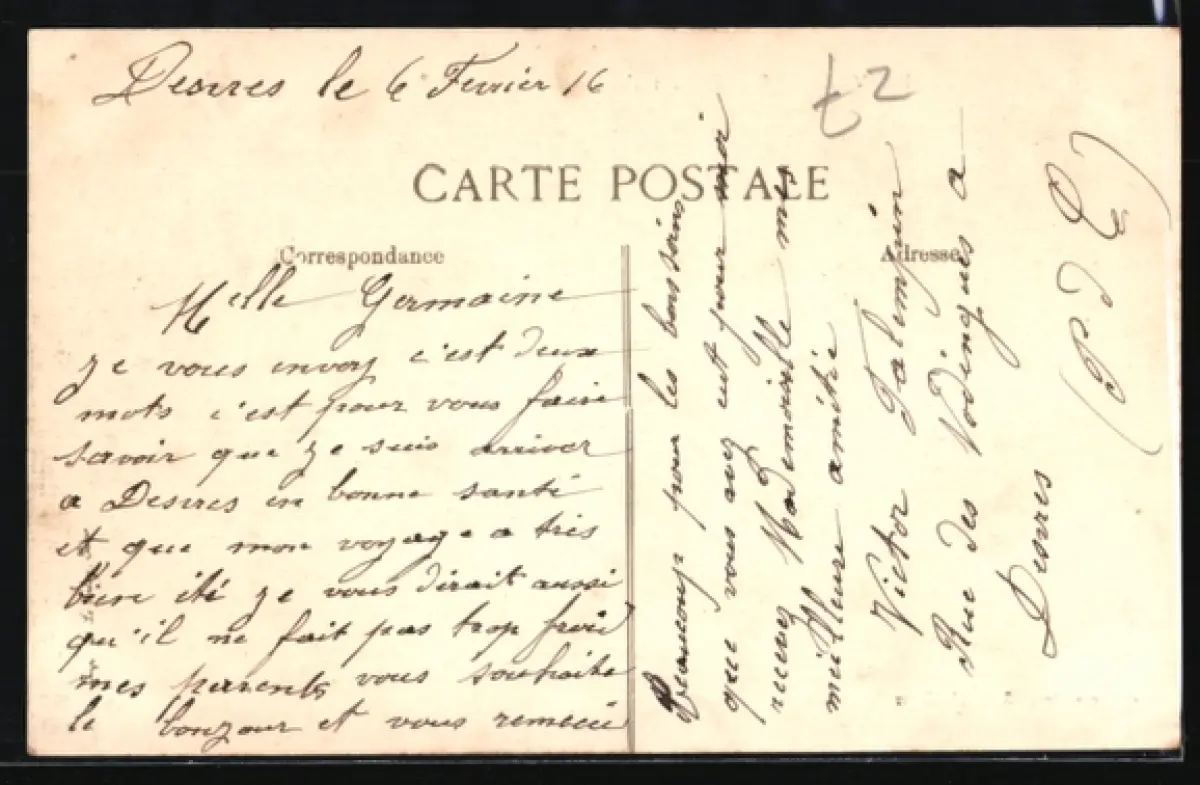 Desvres le 6 Fevrier 16
t2
CARTE POSTALE
Correspondance
Adresse
Melle Germaine
Je vous envoy c'est deux
mots c'est pour vous faire
savoir que je suis arriver
a Desvres en bonne santé
et que mon voyage a très
bien été je vous dirait aussi
qu'il ne fait pas trop froid
mes parents vous souhaite
le bonjour et vous remecie
Beaucoup pour les bons soins
que vous avez eut pour moi
recevez Mademoiselle mes
meilleure amitie
Victor
Rue des a
Desvres
(P d C)